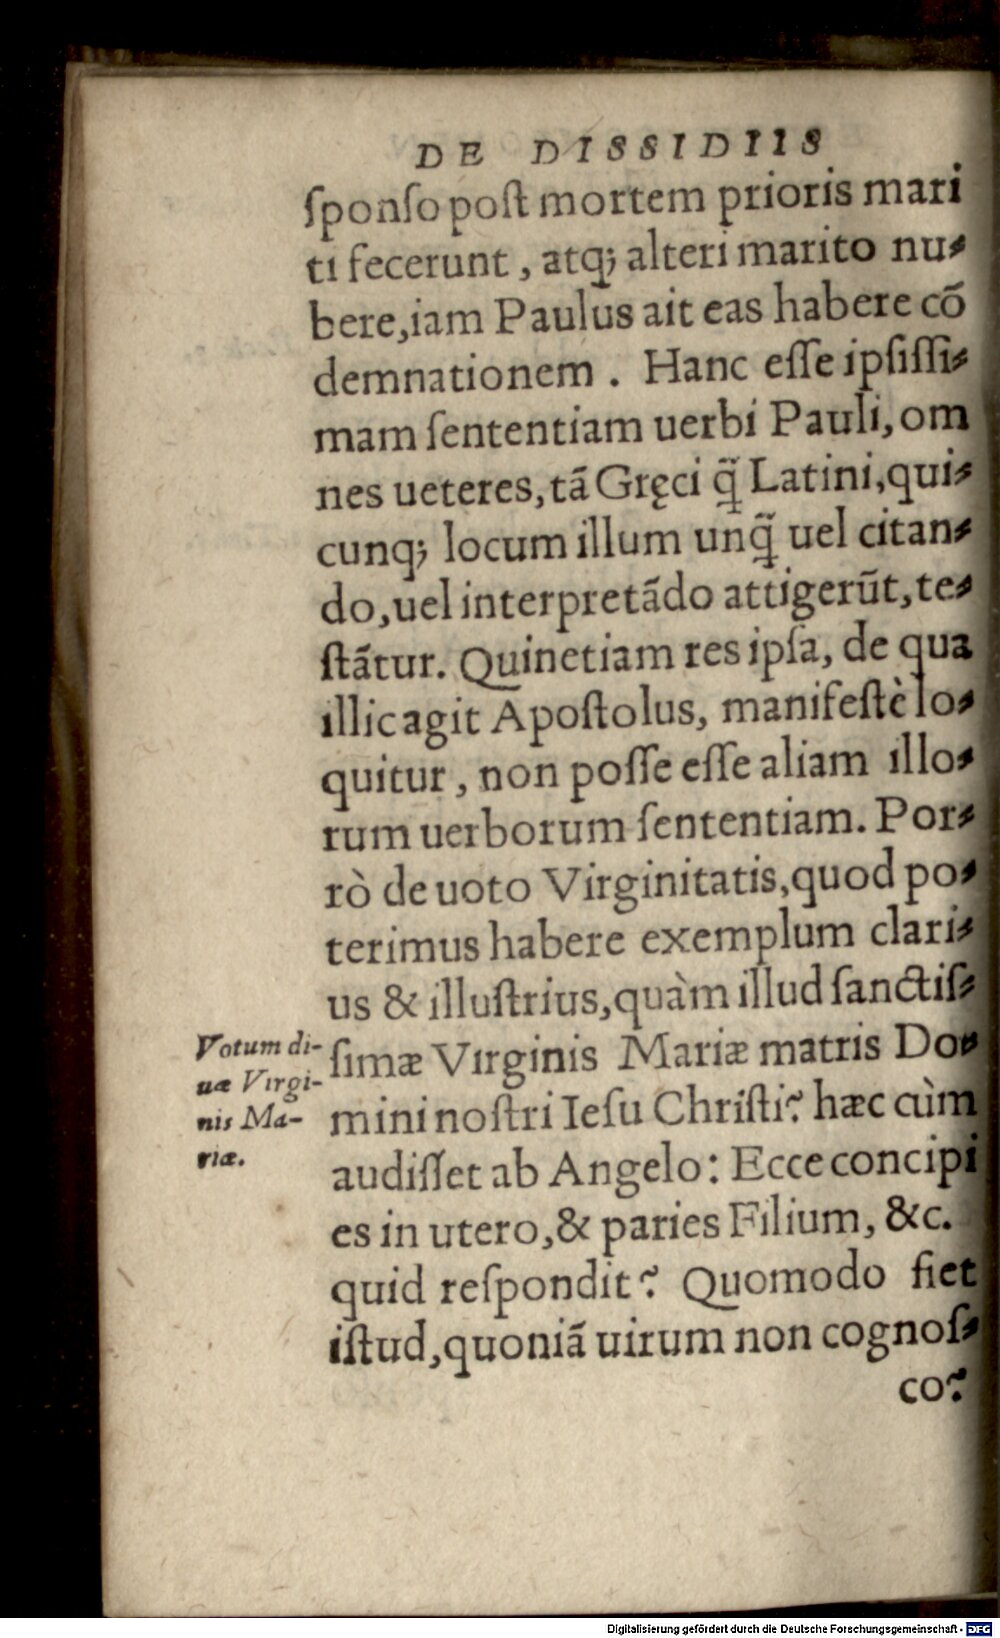 DE DISSIDIIS
ſponſo poſt mortem prioris mari
ti fecerunt, atq; alteri marito nu-
bere, iam Paulus ait eas habere cō
demnationem. Hanc eſſe ipſiſſi-
mam ſententiam uerbi Pauli, om
nes ueteres, tā Gręci q̃ Latini, qui-
cunq; locum illum unq̃ uel citan-
do, uel interpretādo attigerūt, te-
ſtātur. Quinetiam res ipſa, de qua
illic agit Apoſtolus, manifeſtè lo-
quitur, non poſſe eſſe aliam illo-
rum uerborum ſententiam. Por-
rò de uoto Virginitatis, quod po-
terimus habere exemplum clari-
us & illuſtrius, quàm illud ſanctiſ-
ſimæ Virginis Mariæ matris Do-
mini noſtri Ieſu Chriſti? hæc cùm
audiſſet ab Angelo: Ecce concipi
es in utero, & paries Filium, &c.
quid reſpondit? Quomodo fiet
iſtud, quoniā uirum non cognoſ-
co?
Votum di-
uæ Virgi-
nis Ma-
riæ.
Digitalisierung gefördert durch die Deutsche Forschungsgemeinschaft - DFG